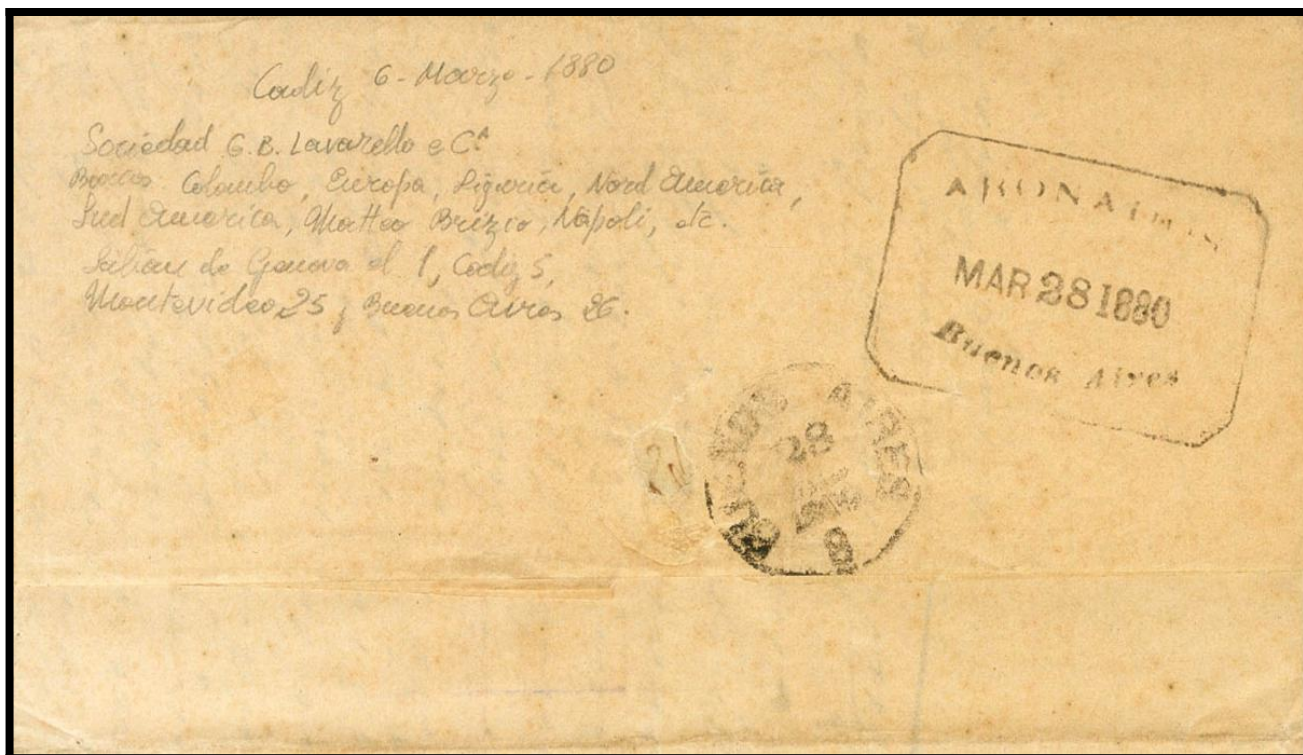 Cadiz 6 - Marzo - 1880
Sociedad G. B. Lavarello e Cª
Barcos Colombo, Europa, Liguria, Nord America,
Sud America, Matteo Brizio, Napoli, etc.
Salian de Genova el 1, Cadiz 5,
Montevideo 25, y Buenos Aires 26.
MAR 28 1880
Buenos Aires
BUENOS AIRES
28